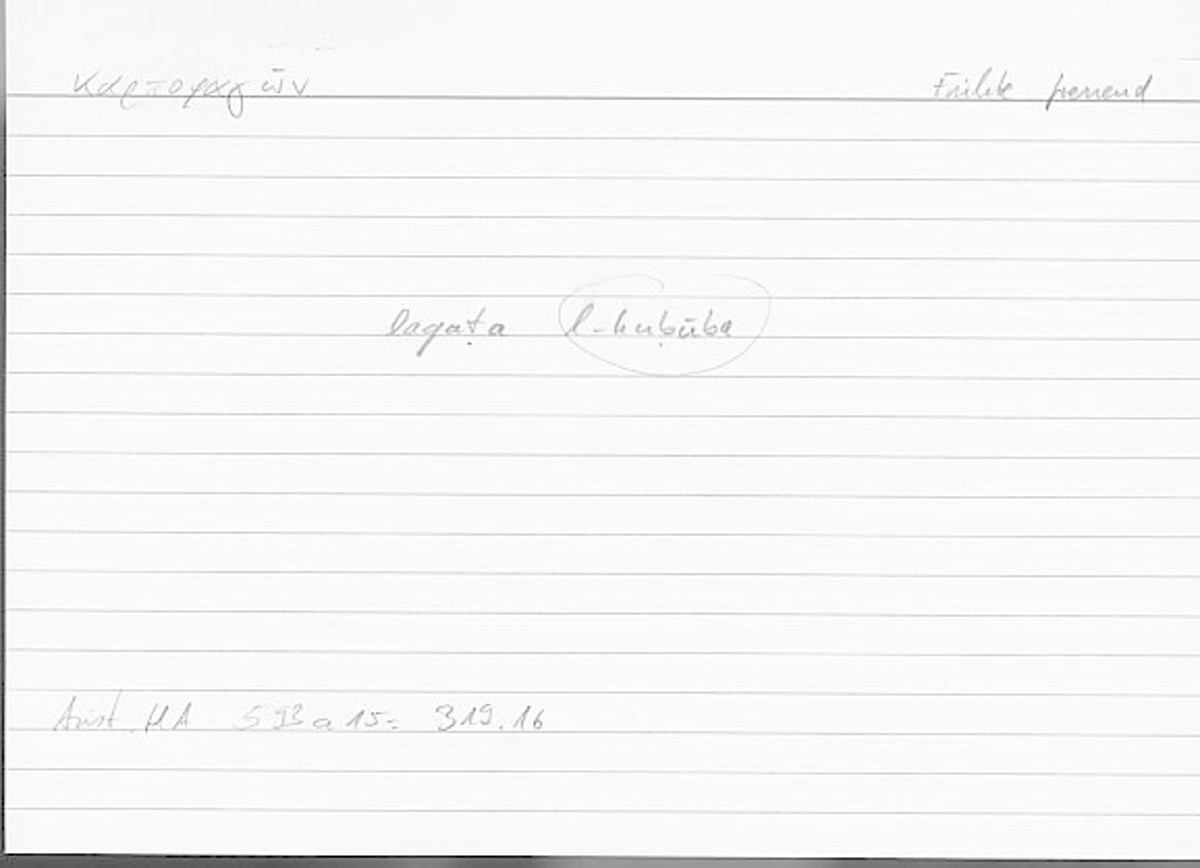 καρποφαγῶν Früchte fressend
laqaṭa l-ḥubūba
Arist. HA 593 a 15 = 319.16